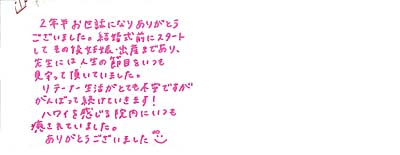 2年半お世話になりありがとう
ございました。結婚式前にスタート
して その後 妊娠・出産まであり、
先生には人生の節目をいつも
見守って頂いていました。
リテーナー生活がとても不安ですが
がんばって続けていきます！
ハワイを感じる院内にいつも
癒されていました。
ありがとうございました